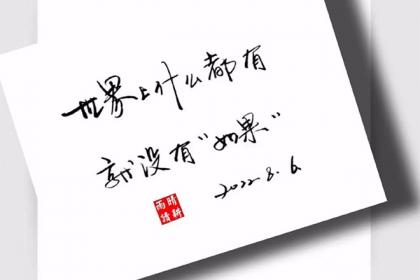 世界上什么都有
就没有“如果”
2022.8.6
晴耕
雨读